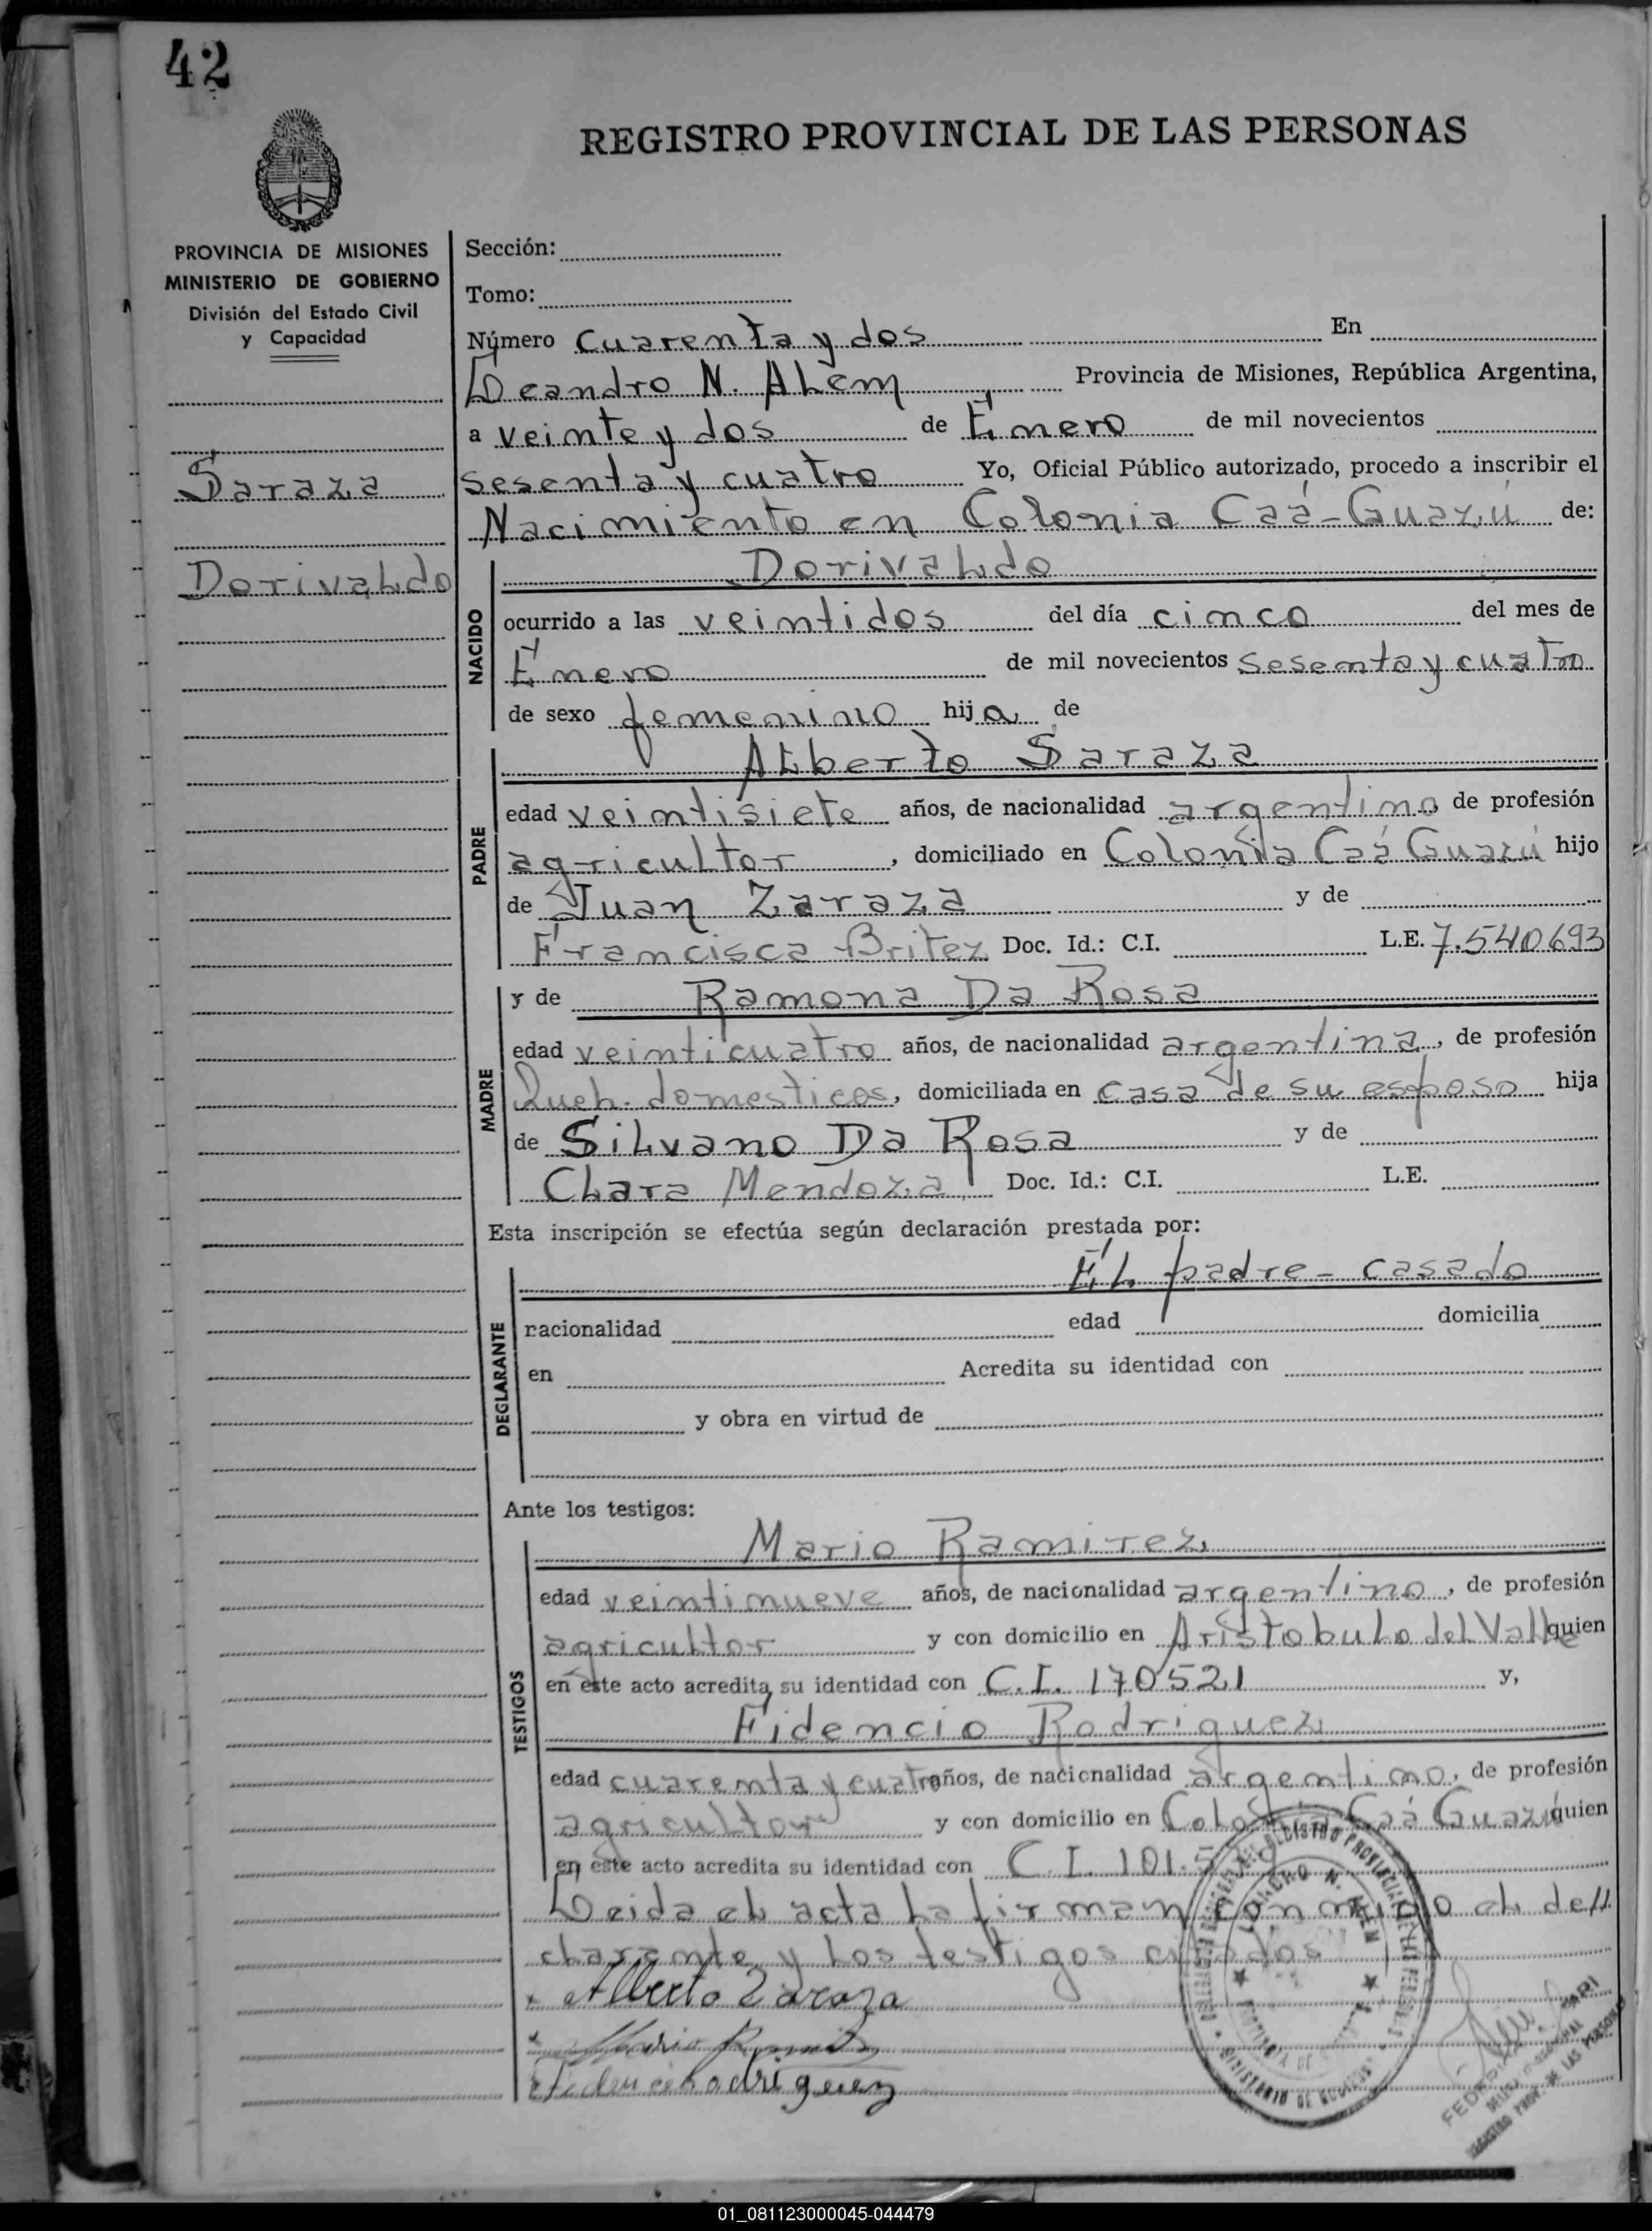 42
REGISTRO PROVINCIAL DE LAS PERSONAS
PROVINCIA DE MISIONES
MINISTERIO DE GOBIERNO
División del Estado Civil
y Capacidad
Saraza
Dorivaldo
Sección:
Tomo:
Número cuarenta y dos En
Leandro N. Alem Provincia de Misiones, República Argentina,
a veinte y dos de Enero de mil novecientos
sesenta y cuatro Yo, Oficial Público autorizado, procedo a inscribir el
Nacimiento en Colonia Caá-Guazú de:
NACIDO
Dorivaldo
ocurrido a las veintidos del día cinco del mes de
Enero de mil novecientos sesenta y cuatro
de sexo femenino hija de
PADRE
Alberto Saraza
edad veintisiete años, de nacionalidad argentino de profesión
agricultor, domiciliado en Colonia Caá Guazú hijo
de Juan Zaraza y de
Francisca Britez Doc. Id.: C.I. L.E. 7.540693
MADRE
y de Ramona Da Rosa
edad veinticuatro años, de nacionalidad argentina, de profesión
Queh. domesticos, domiciliada en casa de su esposo hija
de Silvano Da Rosa y de
Clara Mendoza Doc. Id.: C.I. L.E.
Esta inscripción se efectúa según declaración prestada por:
DEGLARANTE
El padre - casado
nacionalidad edad domicilia
en Acredita su identidad con
y obra en virtud de
Ante los testigos:
TESTIGOS
Mario Ramirez
edad veintinueve años, de nacionalidad argentino, de profesión
agricultor y con domicilio en Aristobulo del Valle quien
en este acto acredita su identidad con C.I. 170521 y,
Fidencio Rodriguez
edad cuarenta y cuatro años, de nacionalidad argentino, de profesión
agricultor y con domicilio en Colonia Caá Guazú quien
en este acto acredita su identidad con C.I. 101.5
Leida el acta la firman con migo el de//
clarante y los testigos citados
Alberto Zaraza
Mario Ramirez
Fidencio Rodriguez
REGISTRO PROVINCIAL DE LAS PERSONAS
LEANDRO N. ALEM
MINISTERIO DE GOBIERNO
REGISTRO PROV. DE LAS PERSONAS
01_081123000045-044479